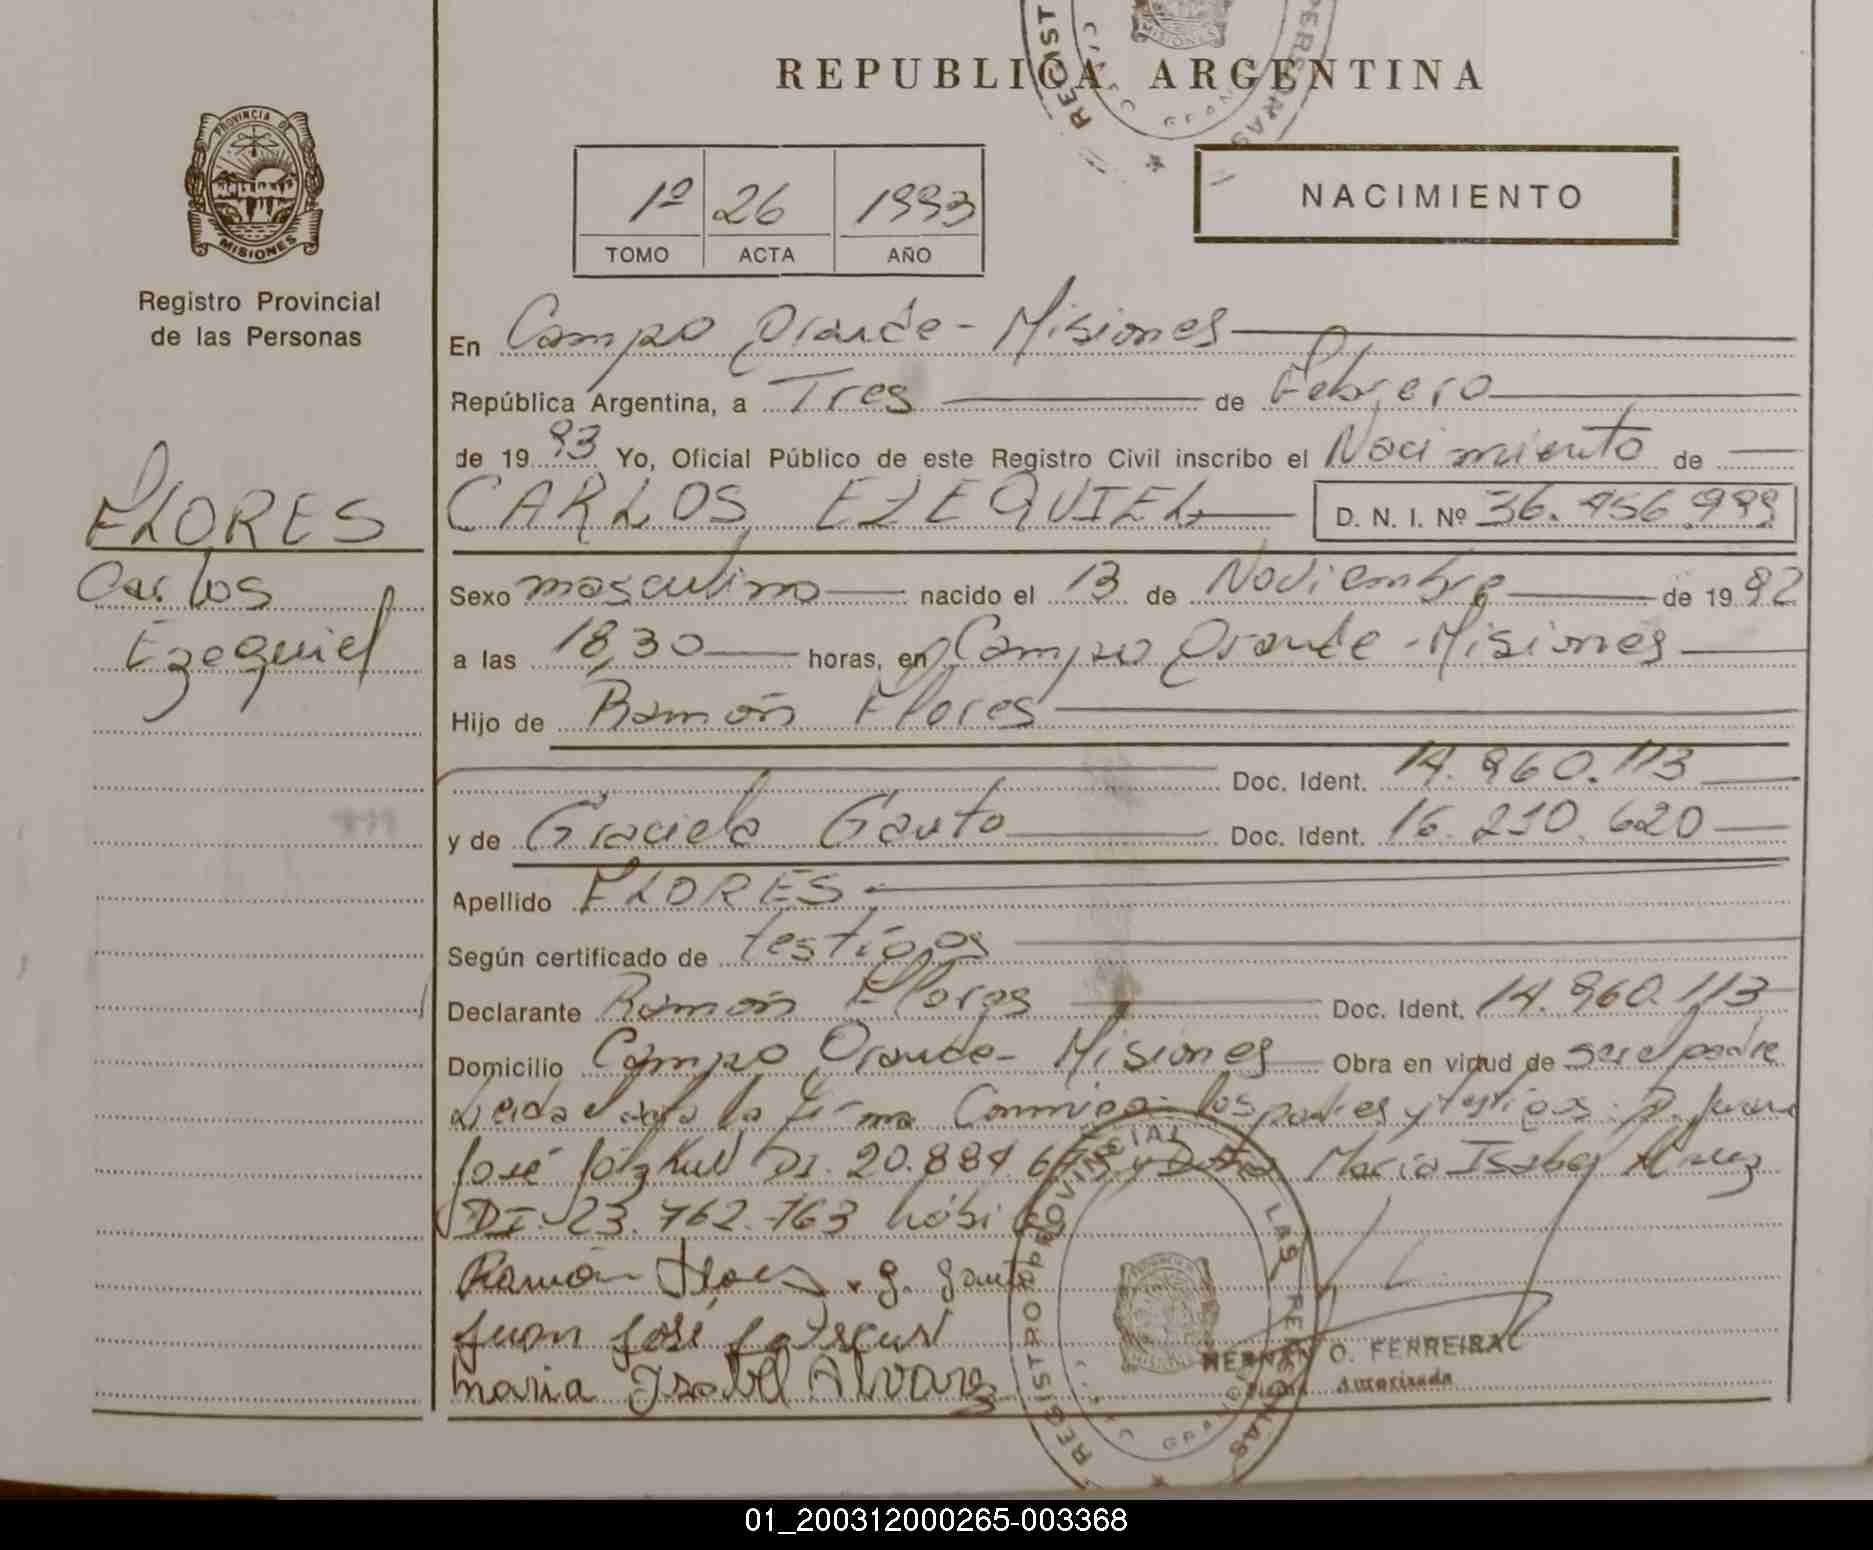 REPUBLICA ARGENTINA
PROVINCIA DE
MISIONES
Registro Provincial
de las Personas
1º 26 1993
TOMO ACTA AÑO
NACIMIENTO
En Campo Grande - Misiones
República Argentina, a Tres de Febrero
de 19 93 Yo, Oficial Público de este Registro Civil inscribo el Nacimiento de
FLORES
Carlos
Ezequiel
CARLOS EZEQUIEL D. N. I. Nº 36.456.999
Sexo masculino nacido el 13 de Noviembre de 19 92
a las 18,30 horas, en Campo Grande - Misiones
Hijo de Ramón Flores
Doc. Ident. 14.960.113
y de Graciela Gauto Doc. Ident. 16.210.620
Apellido FLORES
Según certificado de testigos
Declarante Ramón Flores Doc. Ident. 14.960.113
Domicilio Campo Grande - Misiones Obra en virtud de ser el padre
Leida el acta la firma Conmigo los padres y testigos: D. Juan
José DI. 20.884. y Doña María Isabel
DI. 23.762.763 hábi
Ramón Flores . G. Gauto
Juan José
Maria Isabel Alvarez
HERNAN O. FERREIRA
Autorizada
REGISTRO PROVINCIAL DE LAS PERSONAS
01_200312000265-003368